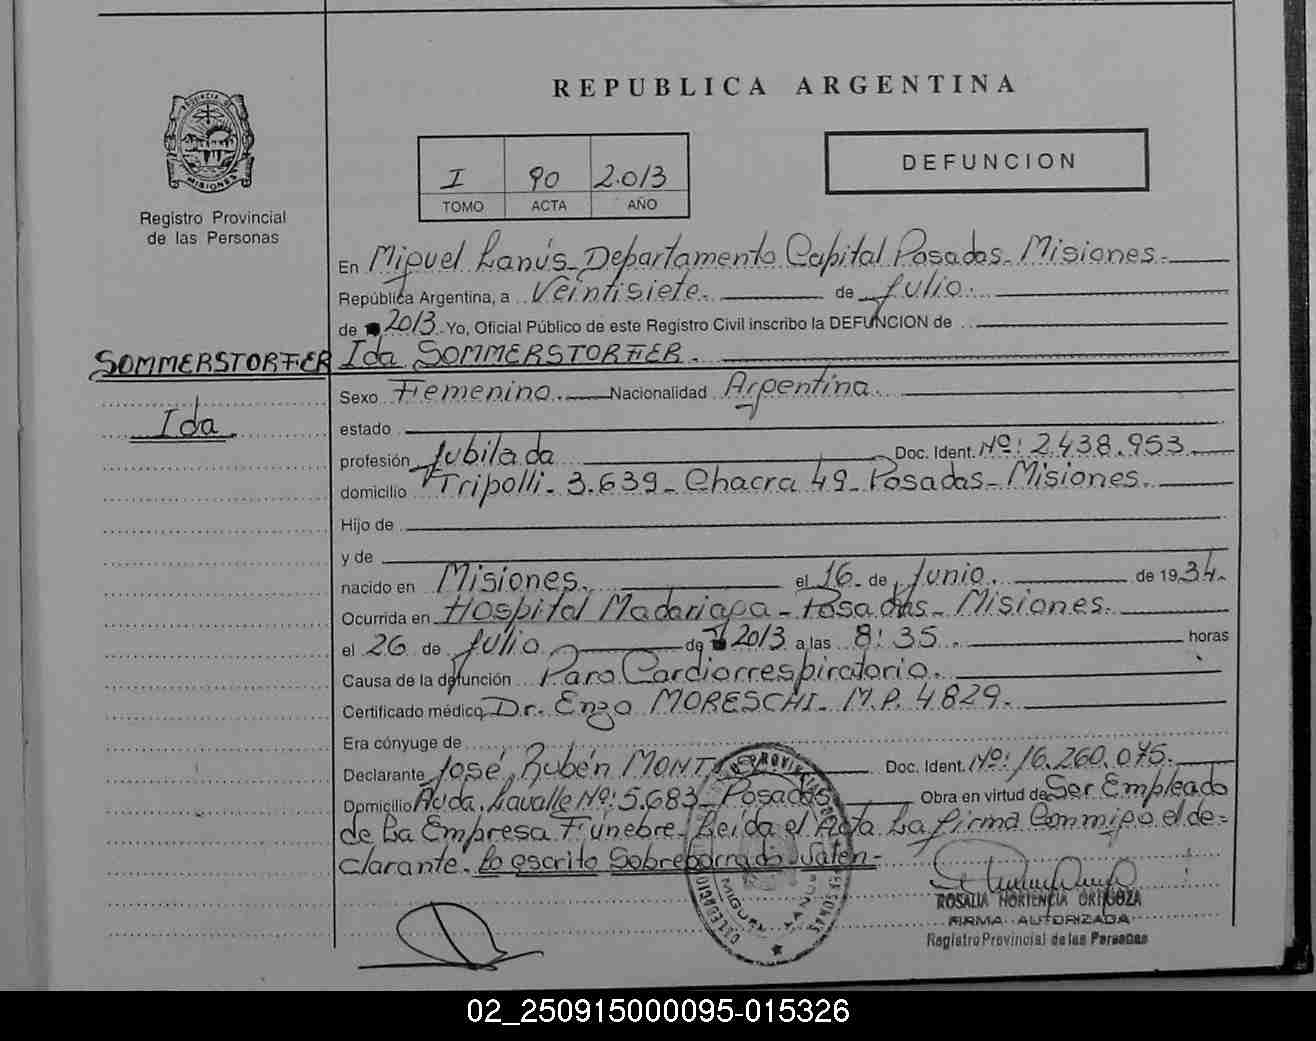 REPUBLICA ARGENTINA
PROVINCIA DE
MISIONES
Registro Provincial
de las Personas
I 90 2.013
TOMO ACTA AÑO
DEFUNCION
En Miguel Lanús_ Departamento Capital Posadas_ Misiones.
República Argentina, a Veintisiete. de Julio.
de 2013 Yo, Oficial Público de este Registro Civil inscribo la DEFUNCION de
SOMMERSTORFIER
Ida
Ida SOMMERSTORFIER.
Sexo Femenino. Nacionalidad Argentina.
estado
profesión Jubilada Doc. Ident. Nº: 2.438.953
domicilio Tripolli_ 3.639_ Chacra 49_ Posadas_ Misiones.
Hijo de
y de
nacido en Misiones. el 16. de Junio. de 1934.
Ocurrida en Hospital Madariaga_ Posadas_ Misiones.
el 26 de Julio de 2013 a las 8:35. horas
Causa de la defunción Paro Cardiorrespiratorio.
Certificado médico Dr. Enzo MORESCHI_ M.P. 4829.
Era cónyuge de
Declarante José Rubén Doc. Ident. Nº: 16.260.075.
Domicilio Avda. Lavalle Nº: 5.683_ Posadas Obra en virtud de Ser Empleado
de La Empresa Fúnebre_ Leída el Acta La firma Conmigo el de=
clarante. Lo escrito Sobreborrado Valen-
MIGUEL LANUS
ROSALIA HORTENCIA ORTIGOZA
FIRMA AUTORIZADA
Registro Provincial de las Personas
02_250915000095-015326